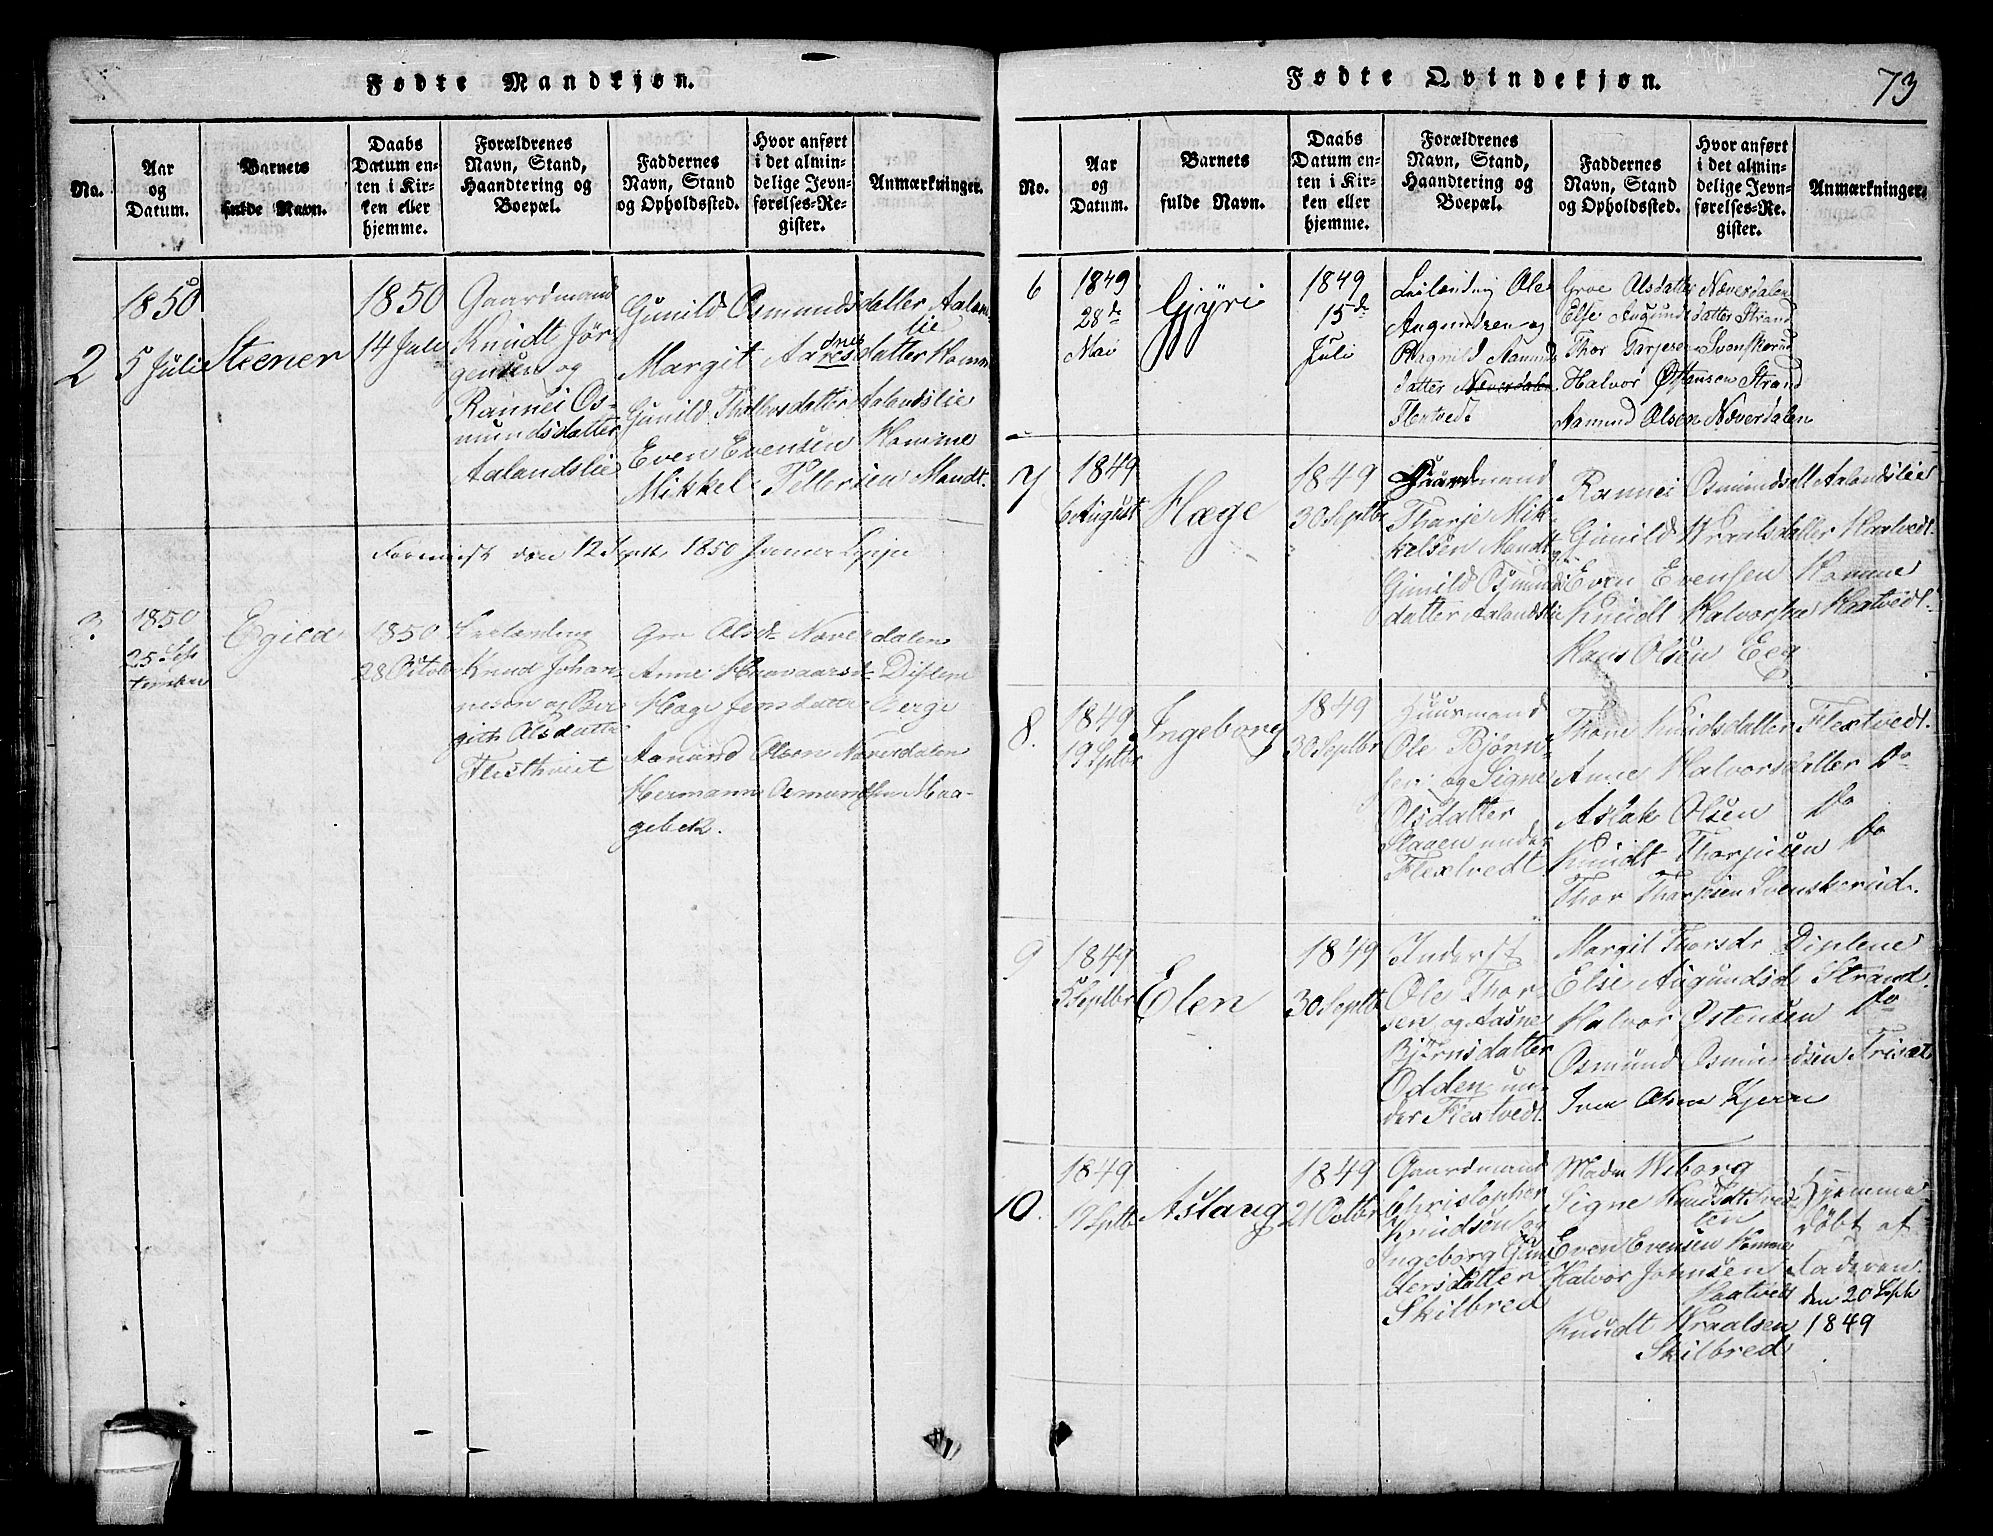 Fødte Mandkjøn.
No.
Aar og Datum.
Barnets fulde Navn.
Daabs Datum enten i Kirken eller hjemme.
Forældrenes Navn, Stand, Haandtering og Boepæl.
Faddernes Navn, Stand og Opholdssted.
Hvor anført i det almindelige Jevnførelses-Register.
Anmærkninger.
2
1850
5 Juli
Steener
1850
14 Juli
Gaardmand
Knudt Jör-
gensen og
Rannei Os-
mundsdatter
Aalandslie
Gunild Osmundsdatter Aalands-
lie
Margit Aadnesdatter Homme
Gunild Thallevsdatter Aalandslie
Even Evensen Homme
Mikkel Pettersen Mandt.
den 12 Septb 1850
3.
1850
25 Sep-
tember
Egild
1850
28 October
Knud Johan-
nesen og Ber-
gith Olsdatter
Flesthveit
Gro Olsd. Næverdalen
Anne Haavaarsd. Displene
Hæge Jensdatter Berge
Aamund Olsen Næverdalen
Hermann Osmundsen Maa-
gebek.
Fødte Qvindekjøn.
73
No.
Aar og Datum.
Barnets fulde Navn.
Daabs Datum enten i Kirken eller hjemme.
Forældrenes Navn, Stand, Haandtering og Boepæl.
Faddernes Navn, Stand og Opholdssted.
Hvor anført i det almindelige Jevnførelses-Register.
Anmærkninger.
6
1849
28de
Mai
Gjyri
1849
15de
Juli
Leilænding Ole
Augundsen og
Ragnild Aamunds
datter Næverdalen
Flextvedt
Groe Olsdatter Næverdalen
Else Augundsdatter Strand
Thor Tarjesen Svenskerud
Halvor Østensen Strand
Aamund Olsen Næverdalen
7
1849
6 August
Hæge
1849
30 Septbr
Gaardmand
Tharje Mik-
kelsen Mandt
Gunild Osmunds
datter Aalandslie
Rannei Osmundsd Aalandslie
Gunild Wraalsdatter Haatvedt.
Even Evensen Homme
Knudt Halvorsen Haatvedt.
Hans Olsen Eeg
8.
1849
19 Septbr
Ingeborg
1849
30 Septbr
Huusmand
Ole Björn-
sen og Signe
Olsdatter
under
Flextvedt
Thone Knudsdatter Flextvedt.
Anne Halvorsdatter Do
Aslak Olsen Do
Knudt Tharjesen Do
Thor Tharjesen Svenskerud.
9
1849
5 Septbr
Elen
1849
30 Septbr
Inderst
Ole Thor-
sen og Aasne
Björnsdatter
Odden un-
der Flextvedt
Margit Thorsdr Displene
Else Augundsd Strand.
Halvor Østensen Do
Osmund Osmundsen Trisæt
Iver Olsen Kjern
10.
1849
19 Septbr
Aslaug
1849
21 Octbr
Gaardmand
Christopher
Knudsön og
Ingeborg Gun-
dersdatter
Skilbred
Madm Wiborg
Signe Knudsdtr
Even Evensen Homme
Halvor Johnsen
Haatvedt
Knudt Wraalsen
Skilbred
Hjemme-
döbt af
Faderen.
den 20 Septb
1849